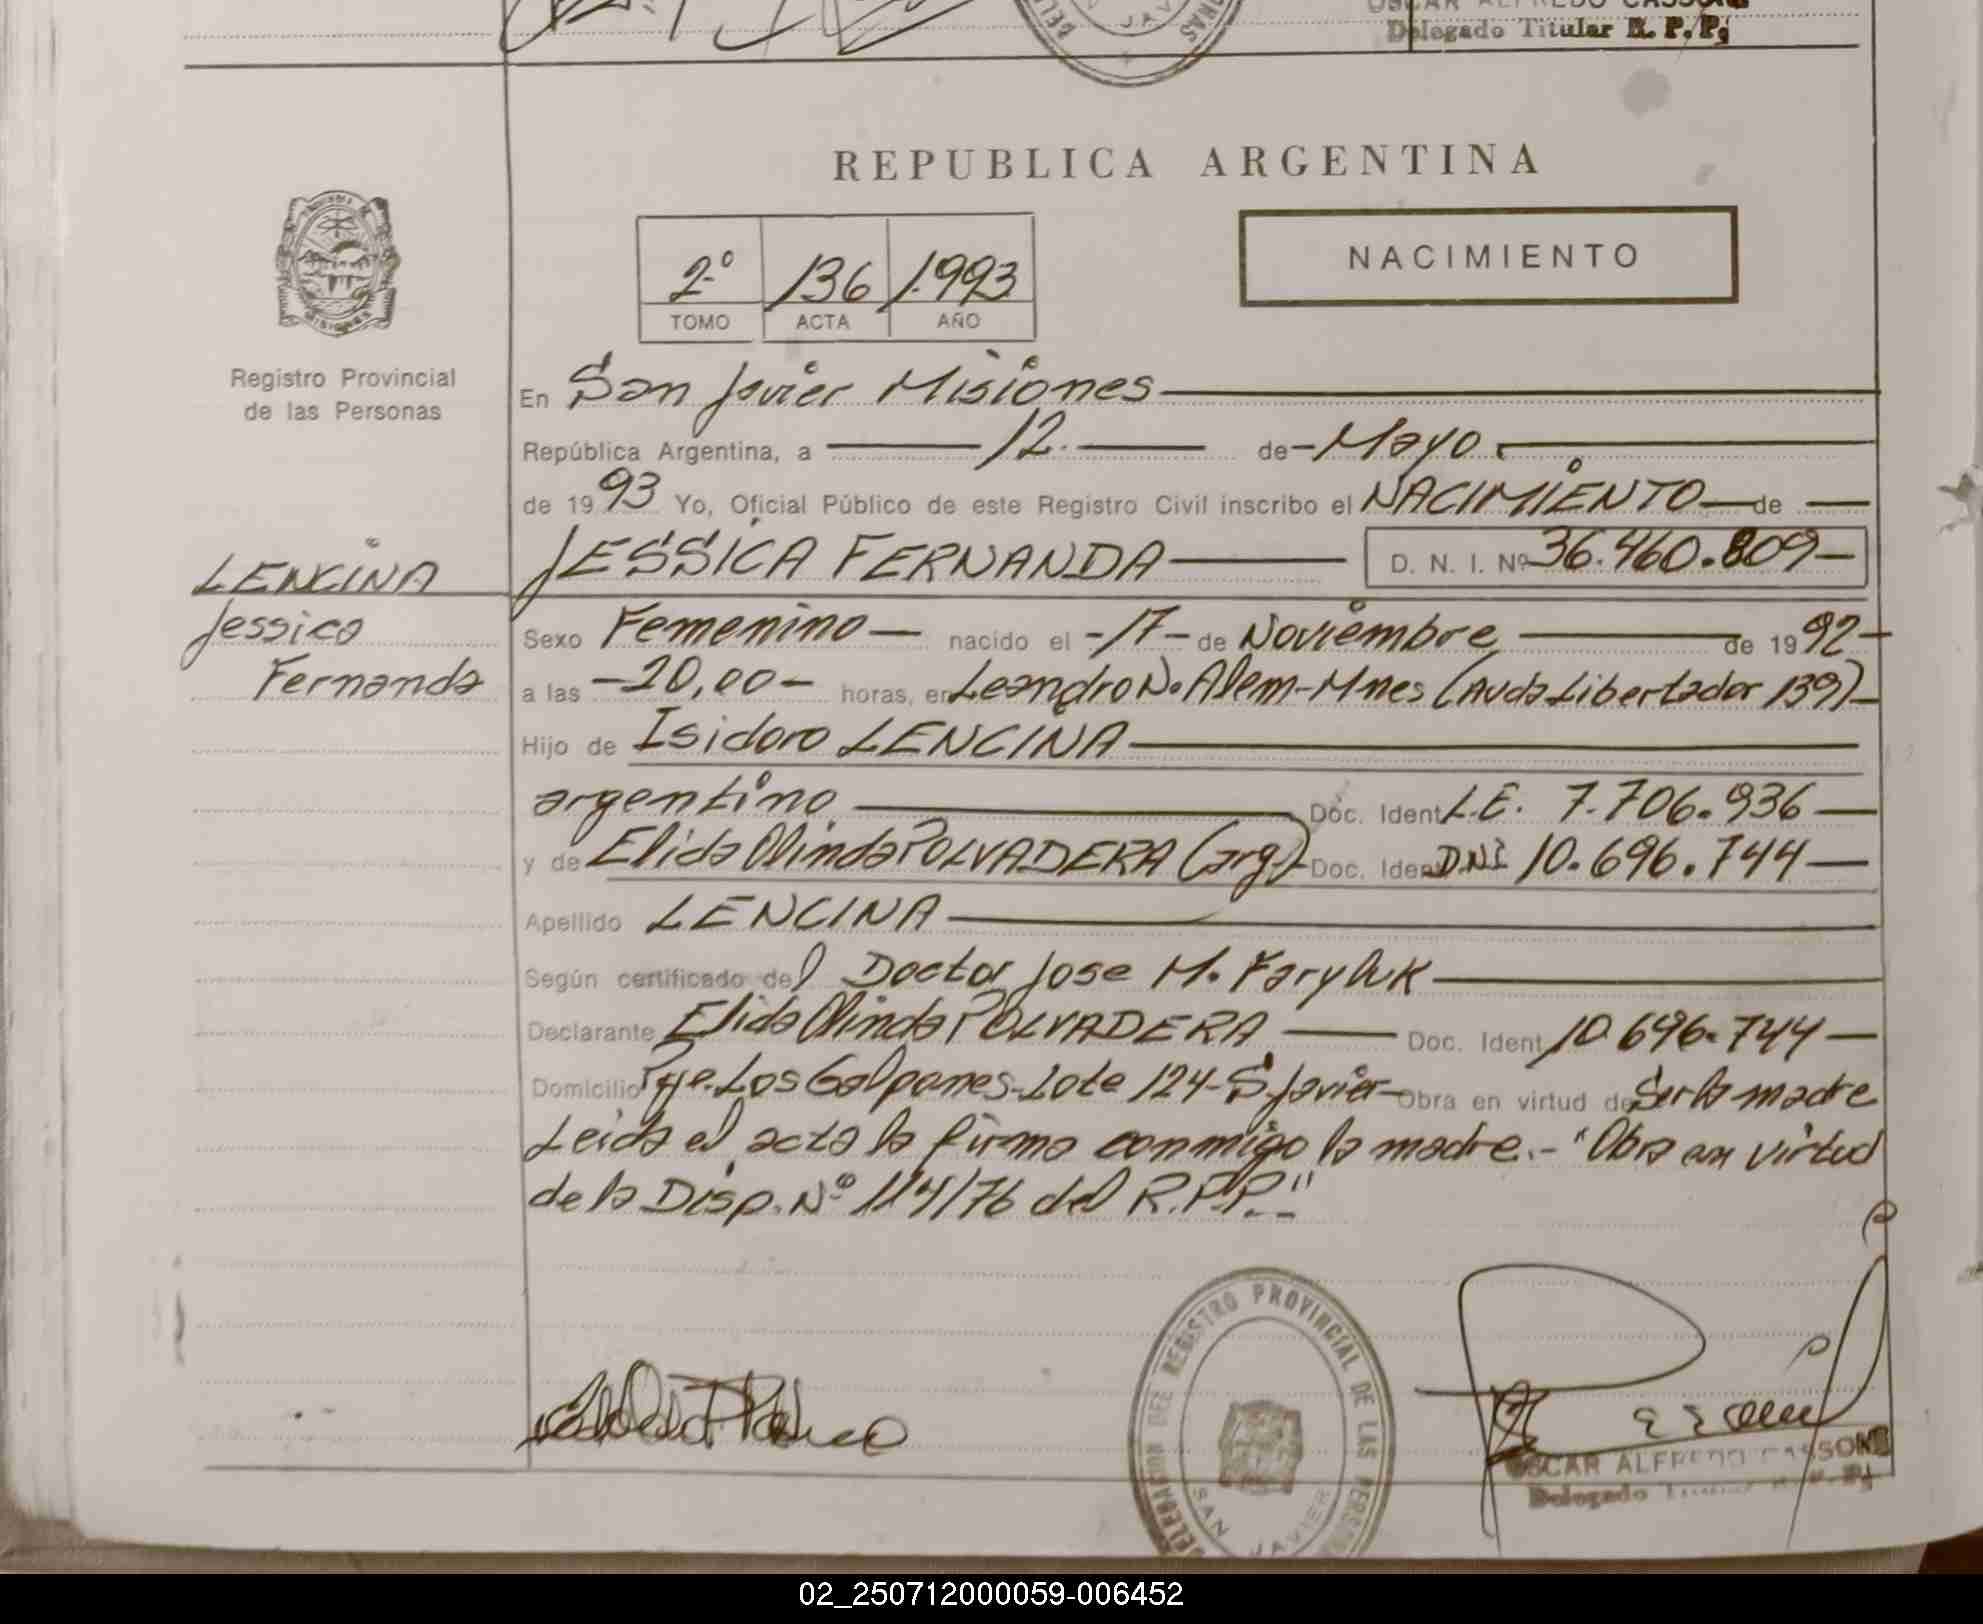 OSCAR ALFREDO CASSONE
Delegado Titular R. P. P.
REPUBLICA ARGENTINA
2º 136 1.993
TOMO ACTA AÑO
NACIMIENTO
Registro Provincial
de las Personas
En San Javier Misiones
República Argentina, a 12. de Mayo
de 1993 Yo, Oficial Público de este Registro Civil inscribo el NACIMIENTO de
LENCINA
Jessica
Fernanda
JESSICA FERNANDA D. N. I. Nº 36.460.809
Sexo Femenino nacido el 17 de Noviembre de 1992
a las 20,00 horas, en Leandro N. Alem-Mnes (Avda Libertador 139)
Hijo de Isidoro LENCINA
argentino Doc. Ident L.E. 7.706.936
y de Elida Olinda POLVADERA (arg.) Doc. Ident DNI 10.696.744
Apellido LENCINA
Según certificado del Doctor Jose M. Faryluk
Declarante Elida Olinda POLVADERA Doc. Ident 10.696.744
Domicilio Pje. Los Galpones-Lote 124-S. Javier Obra en virtud de Ser la madre
Leida el acta la firma conmigo la madre.- "Obra en virtud
de la Disp. Nº 114/76 del R.P.P."
DELEGACION DEL REGISTRO PROVINCIAL DE LAS PERSONAS
SAN JAVIER
OSCAR ALFREDO CASSONE
Delegado Titular R. P. P.
02_250712000059-006452